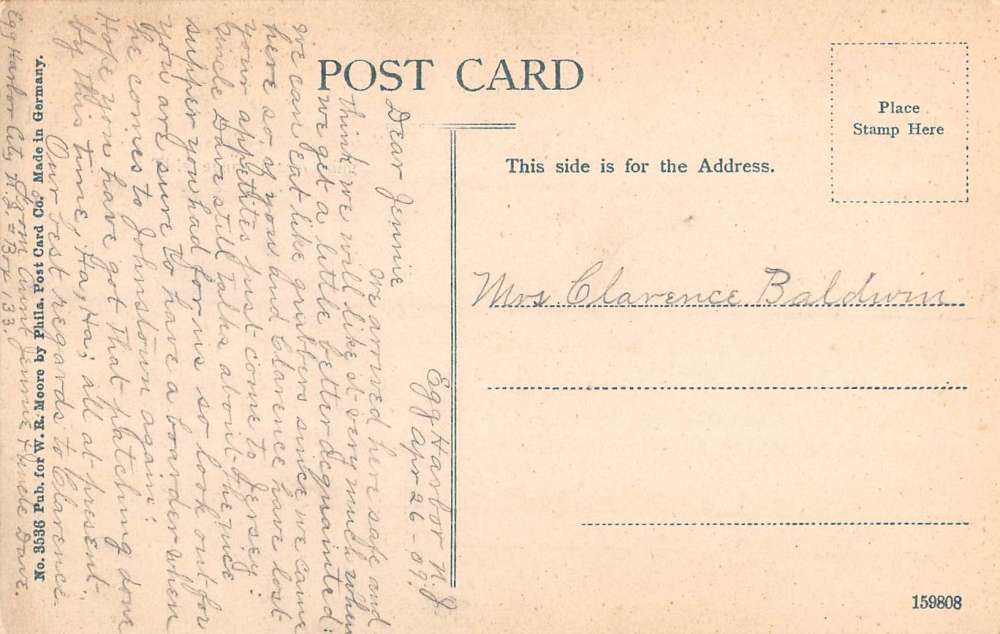 POST CARD
Place
Stamp Here
This side is for the Address.
Mrs. Clarence Baldwin
Egg Harbor N.J.
Apr 26-09.
Dear Jennie
We arrived here safe and
think we will like it very much when
we get a little better acquainted:
we can eat like grubbers since we came
here so if you and Clarence have lost
your appetites just come to Jersey:
Uncle Dave still talks about the nice
supper you had for us so look out for
you are sure to have a boarder when
he comes to Johnstown again:
Hope you have got that patching done
by this time, Ha, Ha; all at present.
Our best regards to Clarence.
From Aunt Jennie & Uncle Dave.
Egg Harbor City N.J. = Box 133.
No. 3536 Pub. for W. R. Moore by Phila. Post Card Co. Made in Germany.
159808